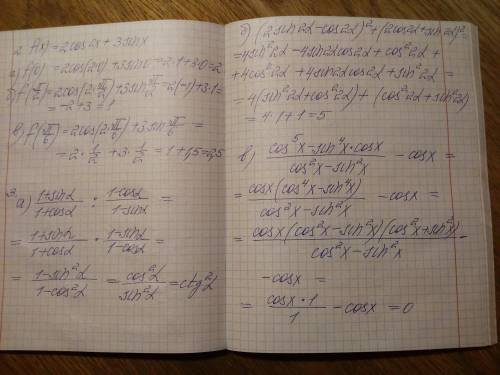 2. f(x) = 2cos2x + 3sinx
а) f(0) = 2cos(2·0) + 3sin0 = 2·1+3·0=2
б) f(π/2) = 2cos(2·π/2) + 3sin π/2 = 2(-1)+3·1=
= -2+3 = 1
в) f(π/6) = 2cos(2·π/6) + 3sin π/6 =
= 2·1/2 + 3·1/2 = 1+1,5=2,5
3. а) (1+sinα)/(1+cosα) : (1-cosα)/(1-sinα) =
= (1+sinα)/(1+cosα) · (1-sinα)/(1-cosα) =
= (1-sin²α)/(1-cos²α) = cos²α/sin²α = ctg²α
б) (2sin2α-cos2α)²+(2cos2α+sin2α)²=
=4sin²2α-4sin2αcos2α+cos²2α+
+4cos²2α+4sin2αcos2α+sin²2α=
=4(sin²2α+cos²2α)+(cos²2α+sin²2α)
=4·1+1=5
в) (cos⁵x-sin⁴x·cosx)/(cos²x-sin²x) -cosx=
= cosx(cos⁴x-sin⁴x)/(cos²x-sin²x) -cosx=
= cosx(cos²x-sin²x)(cos²x+sin²x)/(cos²x-sin²x) -
-cosx =
= (cosx·1)/1 -cosx=0